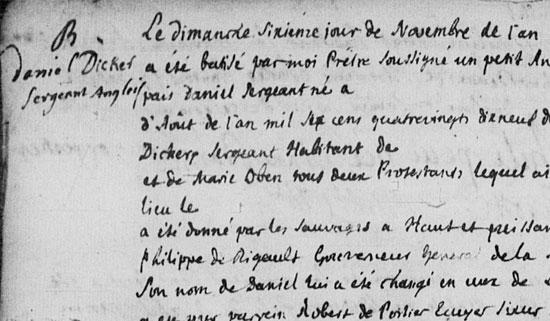 B.
Daniel Dicker
Sergeant Anglois
Le dimanche sixième jour de Novembre de l'an
a été batisé par moi Prêtre soussigné un petit An
pais Daniel Sergeant né a
d'Août de l'an mil six cens quatrevingts dixneuf d
Dickers Sergeant Habitant de
et de Marie Oben tous deux Protestants lequel ai
lieu le
a été donné par les sauvages a Haut et puissan
Philippe de Rigault Gouverneur General de la
Son nom de Daniel lui a été changé en de
parrein Robert de Portier Ecuyer Sieur